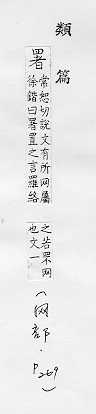 類篇
署
常恕切說文有所网屬
徐鍇曰署置之言羅絡
之若罘网
也文一
(网部.P269)